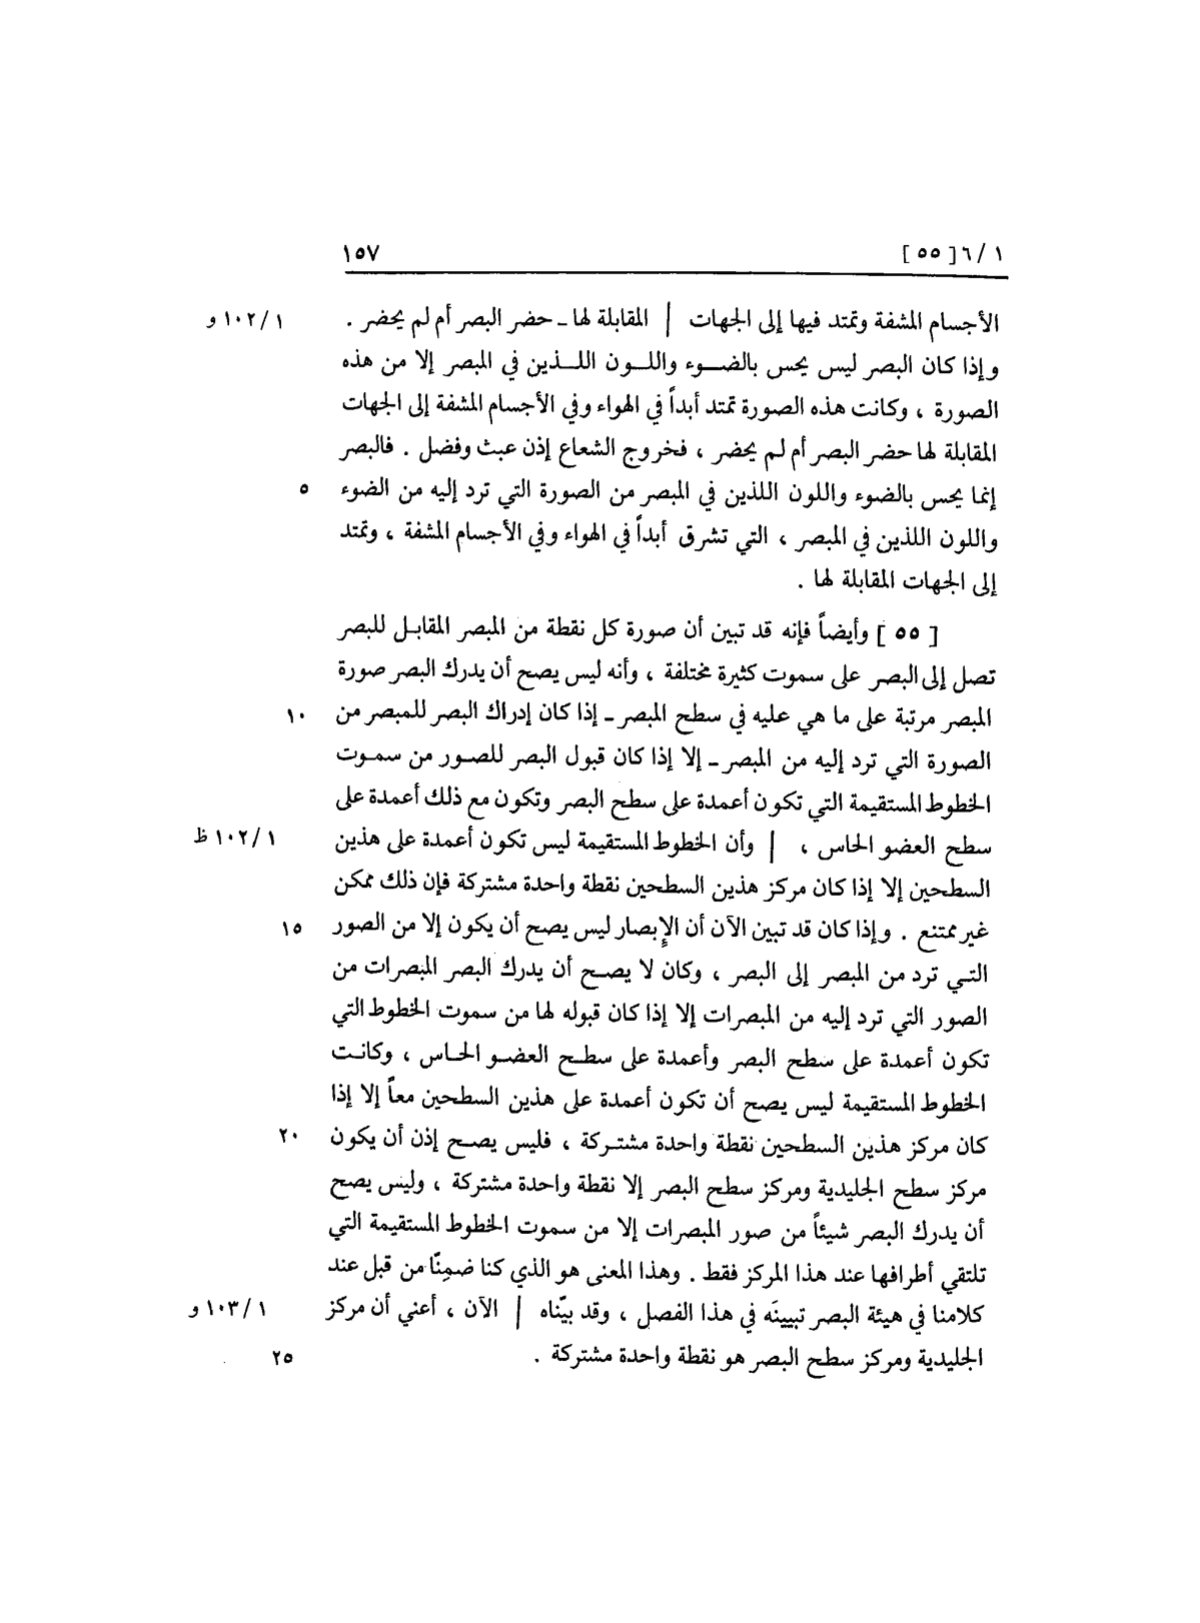 ١ / ٦ [ ٥٥ ] ١٥٧
الأجسام المشفة وتمتد فيها إلى الجهات | المقابلة لها ـ حضر البصر أم لم يحضر . ١ / ١٠٢ و
وإذا كان البصر ليس يحس بالضوء واللون اللذين في المبصر إلا من هذه
الصورة ، وكانت هذه الصورة تمتد أبداً في الهواء وفي الأجسام المشفة إلى الجهات
المقابلة لها حضر البصر أم لم يحضر ، فخروج الشعاع إذن عبث وفضل . فالبصر
إنما يحس بالضوء واللون اللذين في المبصر من الصورة التي ترد إليه من الضوء ٥
واللون اللذين في المبصر ، التي تشرق أبداً في الهواء وفي الأجسام المشفة ، وتمتد
إلى الجهات المقابلة لها .
[ ٥٥ ] وأيضاً فإنه قد تبين أن صورة كل نقطة من المبصر المقابل للبصر
تصل إلى البصر على سموت كثيرة مختلفة ، وأنه ليس يصح أن يدرك البصر صورة
المبصر مرتبة على ما هي عليه في سطح المبصر ـ إذا كان إدراك البصر للمبصر من ١٠
الصورة التي ترد إليه من المبصر ـ إلا إذا كان قبول البصر للصور من سموت
الخطوط المستقيمة التي تكون أعمدة على سطح البصر وتكون مع ذلك أعمدة على
سطح العضو الحاس ، | وأن الخطوط المستقيمة ليس تكون أعمدة على هذين ١ / ١٠٢ ظ
السطحين إلا إذا كان مركز هذين السطحين نقطة واحدة مشتركة فإن ذلك ممكن
غير ممتنع . وإذا كان قد تبين الآن أن الإبصار ليس يصح أن يكون إلا من الصور ١٥
التي ترد من المبصر إلى البصر ، وكان لا يصح أن يدرك البصر المبصرات من
الصور التي ترد إليه من المبصرات إلا إذا كان قبوله لها من سموت الخطوط التي
تكون أعمدة على سطح البصر وأعمدة على سطح العضو الحاس ، وكانت
الخطوط المستقيمة ليس يصح أن تكون أعمدة على هذين السطحين معاً إلا إذا
كان مركز هذين السطحين نقطة واحدة مشتركة ، فليس يصح إذن أن يكون ٢٠
مركز سطح الجليدية ومركز سطح البصر إلا نقطة واحدة مشتركة ، وليس يصح
أن يدرك البصر شيئاً من صور المبصرات إلا من سموت الخطوط المستقيمة التي
تلتقي أطرافها عند هذا المركز فقط . وهذا المعنى هو الذي كنا ضمِنّا من قبل عند
كلامنا في هيئة البصر تبيينَه في هذا الفصل ، وقد بيّناه | الآن ، أعني أن مركز ١ / ١٠٣ و
الجليدية ومركز سطح البصر هو نقطة واحدة مشتركة . ٢٥